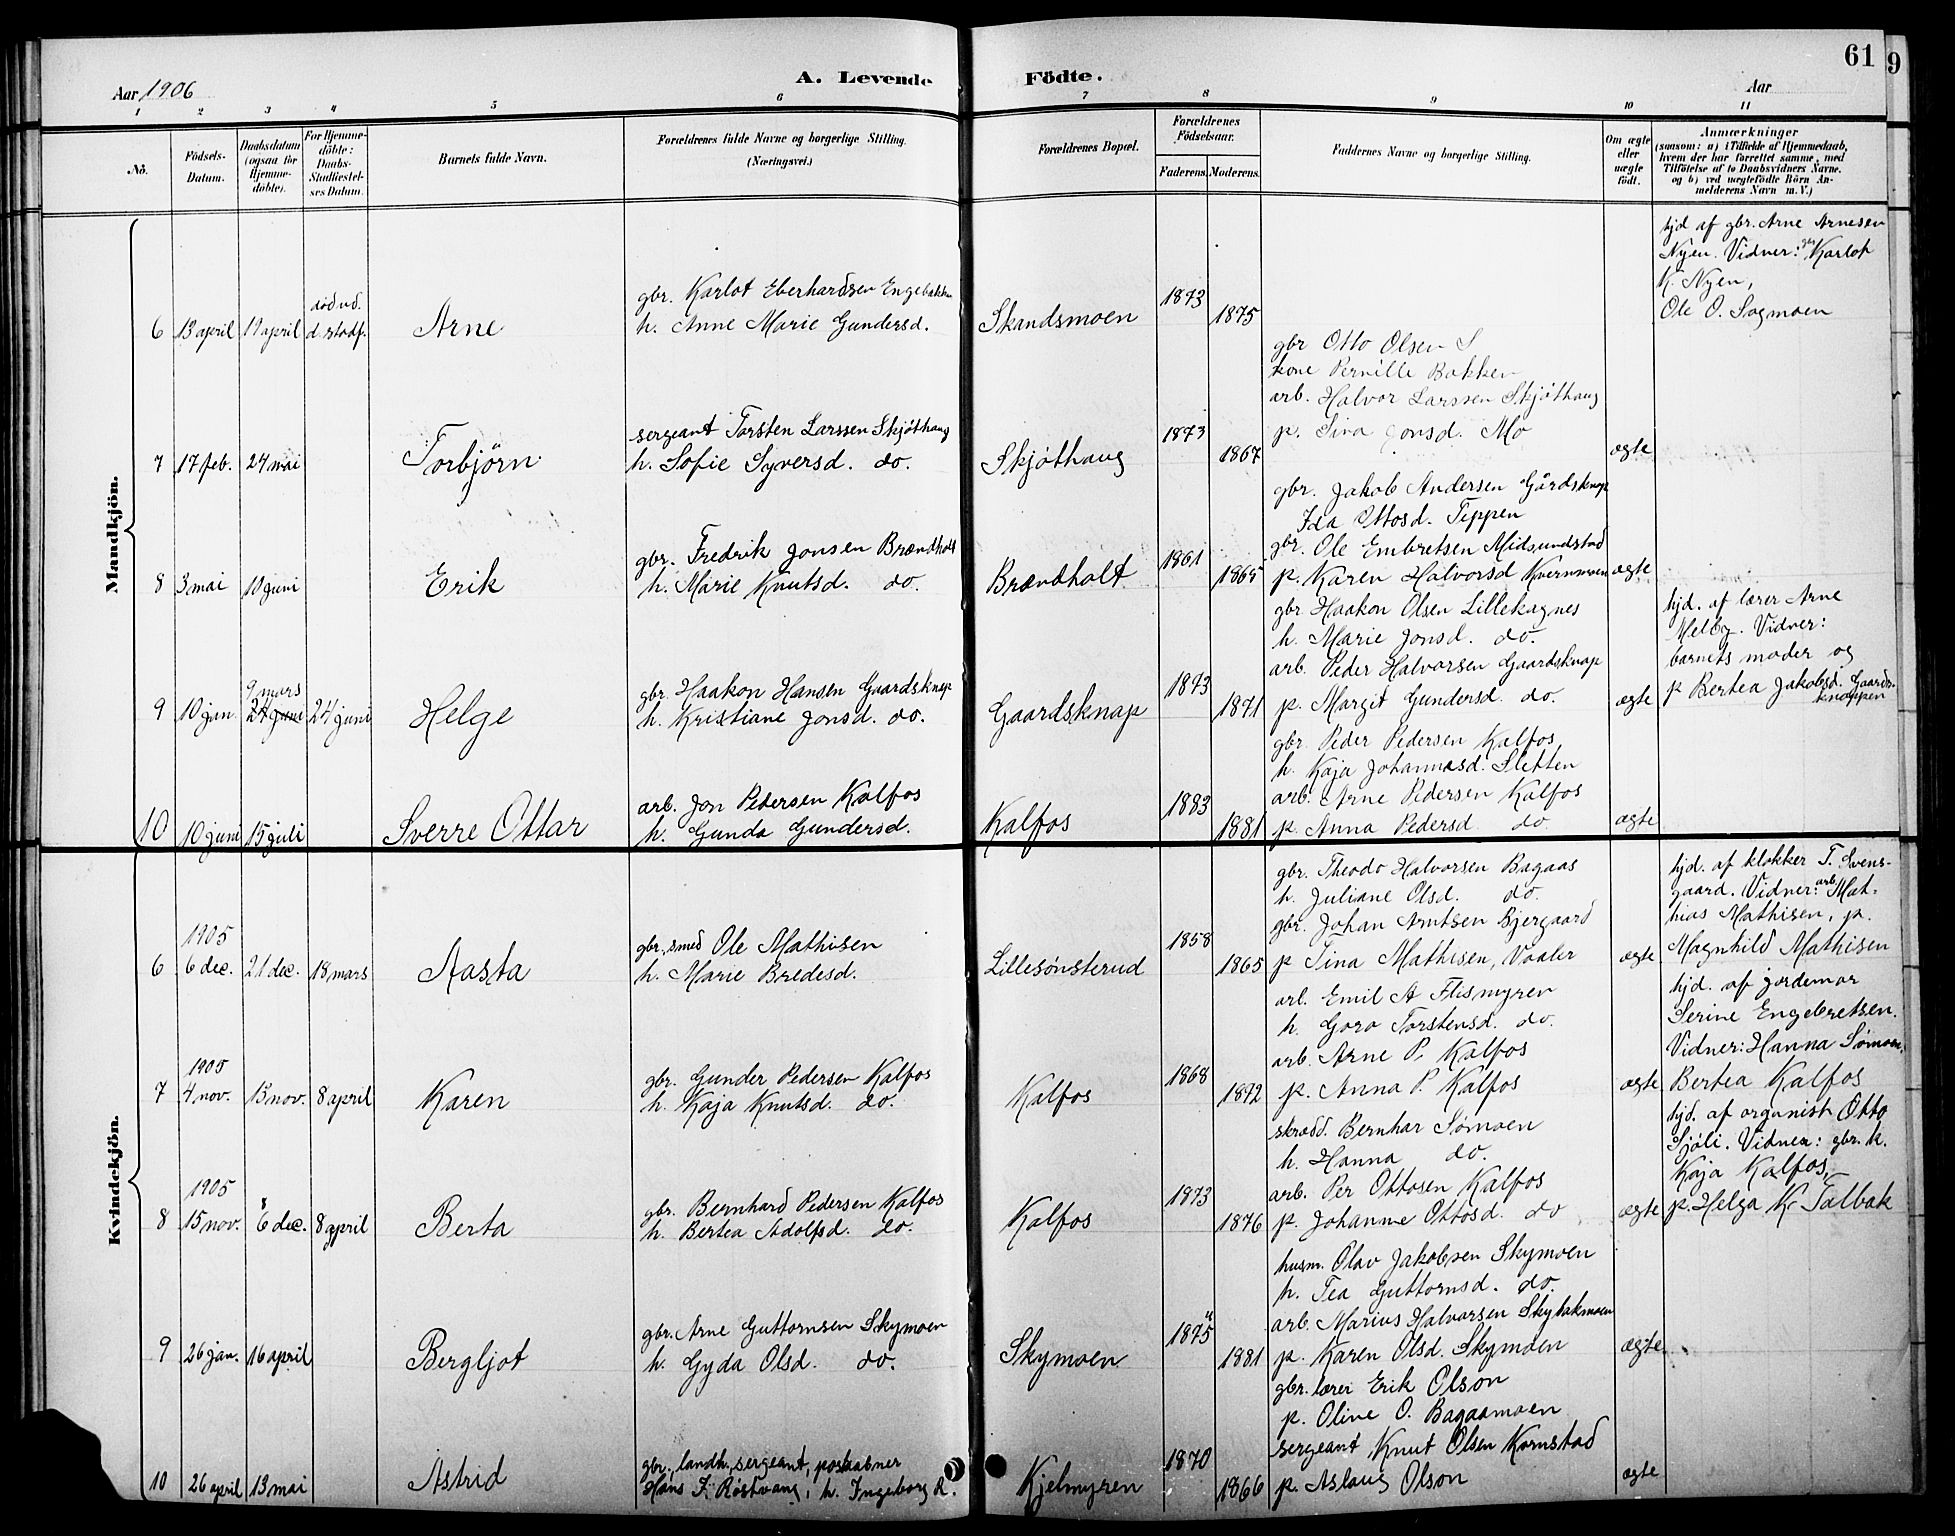 61
9
Aar 1906
A. Levende
Födte.
Aar
1 2 3 4 5 6 7 8 9 10 11
No.
Födsels-
Datum.
Daabsdatum
(ogsaa for
Hjemme-
döbte).
For Hjemme-
döbte:
Daabs-
Stadfæstel-
ses Datum.
Barnets fulde Navn.
Forældrenes fulde Navne og borgerlige Stilling.
(Næringsvei.)
Forældrenes Bopæl.
Forældrenes
Födselsaar.
Faderens.
Moderens.
Faddernes Navne og borgerlige Stilling.
Om ægte
eller
uægte
födt.
Anmærkninger
(saasom: a) i Tilfælde af Hjemmedaab,
hvem der har forrettet samme, med
Tilföielse af to Daabsvidners Navne.
og b) ved uægtefödte Börn An-
melderens Navn m. V.)
Mandkjön.
6 13 april 19 april
død ud.
d. stadf.
Arne
gbr. Karlot Eberhardsen Engebakken
h. Anne Marie Gundersd.
Skandsmoen
1873
1875
hjd af gbr. Arne Arnesen
Nyen. Vidner: gbr Karlot
K. Nyen,
Ole O. Sagmoen
7 17 feb. 24 mai
Torbjørn
sergeant Torsten Larssen Skjøthaug
h. Sofie Syversd. do.
Skjøthaug
1873
1867
gbr Otto Olsen S
kone Pernille Bakken
arb. Halvor Larssen Skjøthaug
p. Sina Jonsd. Mo
ægte
8 3 mai 10 juni
Erik
gbr. Fredrik Jonsen Brændholt
h. Marie Knutsd. do.
Brændholt
1861
1865
gbr. Jakob Andersen Gårdsknap
Ida Ottosd. Teppen
gbr. Ole Embretsen Midsundstad
p. Karen Halvorsd Kvernmoen
ægte
9 10 jan.
9 mars
24 juni
24 juni
Helge
gbr. Haakon Hansen Gaardsknap
h. Kristiane Jonsd. do.
Gaardsknap
1873
1871
gbr Haakon Olsen Lillekagnes
h. Marie Jonsd. do.
arb. Peder Halvorsen Gaardsknap
p. Margit Gundersd. do.
ægte
hjd. af lærer Arne
Melby. Vidner:
barnets moder og
p Bertea Jakobsd. Gaards-
knappen
10 10 juni 15 juli
Sverre Ottar
arb. Jon Pedersen Kalfos
h. Gunda Gundersd.
Kalfos
1883
1881
gbr. Peder Pedersen Kalfos
h. Kaja Johannesd. Sletten
arb. Arne Pedersen Kalfos
p. Anna Pedersd. do
ægte
Kvindekjön.
6
1905
6 dec. 21 dec. 18 mars
Aasta
gbr., smed Ole Mathisen
h. Marie Bredesd.
Lillesønsterud
1858
1865
gbr. Theodo Halvorsen Bagaas
h. Juliane Olsd. do.
gbr. Johan Arntsen Bjergaard
p Tina Mathisen, Vaaler
ægte
hjd. af klokker T. Svens-
gaard. Vidner: arb. Mat-
hias Mathisen, p.
Magnhild Mathisen
7
1905
4 nov. 13 nov. 8 april
Karen
gbr. Gunder Pedersen Kalfos
h. Kaja Knutsd. do.
Kalfos
1868
1872
arb. Emil A Flismyren
h. Goro Torstensd. do.
arb. Arne P. Kalfos
p. Anna P. Kalfos
ægte
hjd. af jordemor
Serine Engebretsen.
Vidner: Hanna Sømoen,
Bertea Kalfos
8
1905
15 nov. 6 dec. 8 april
Berta
gbr. Bernhard Pedersen Kalfos
h. Bertea Adolfsd. do.
Kalfos
1873
1876
skræd. Bernhar Sømoen
h. Hanna do.
arb. Per Ottosen Kalfos
p. Johanne Ottosd. do
ægte
hjd. af organist Otto
Sjøli. Vidner: gbr. k.
Kaja Kalfos,
p. Helga K. Talbak
9 26 jan. 16 april
Bergljot
gbr. Arne Guttormsen Skymoen
h. Gyda Olsd. do.
Skymoen
1875
1881
husm. Olav Jakobsen Skymoen
h. Tea Guttormsd. do.
arb. Marius Halvorsen Skybakmoen
p. Karen Olsd. Skymoen
ægte
10 26 april 13 mai
Astrid
gbr., landh., sergeant, postaabner
Hans J. Røstvang, h. Ingeborg R.
Kjelmyren
1870
1866
gbr. lærer Erik Olson
p. Oline O. Bagaamoen
sergeant Knut Olsen Kornstad
p. Aslaug Olson
ægte